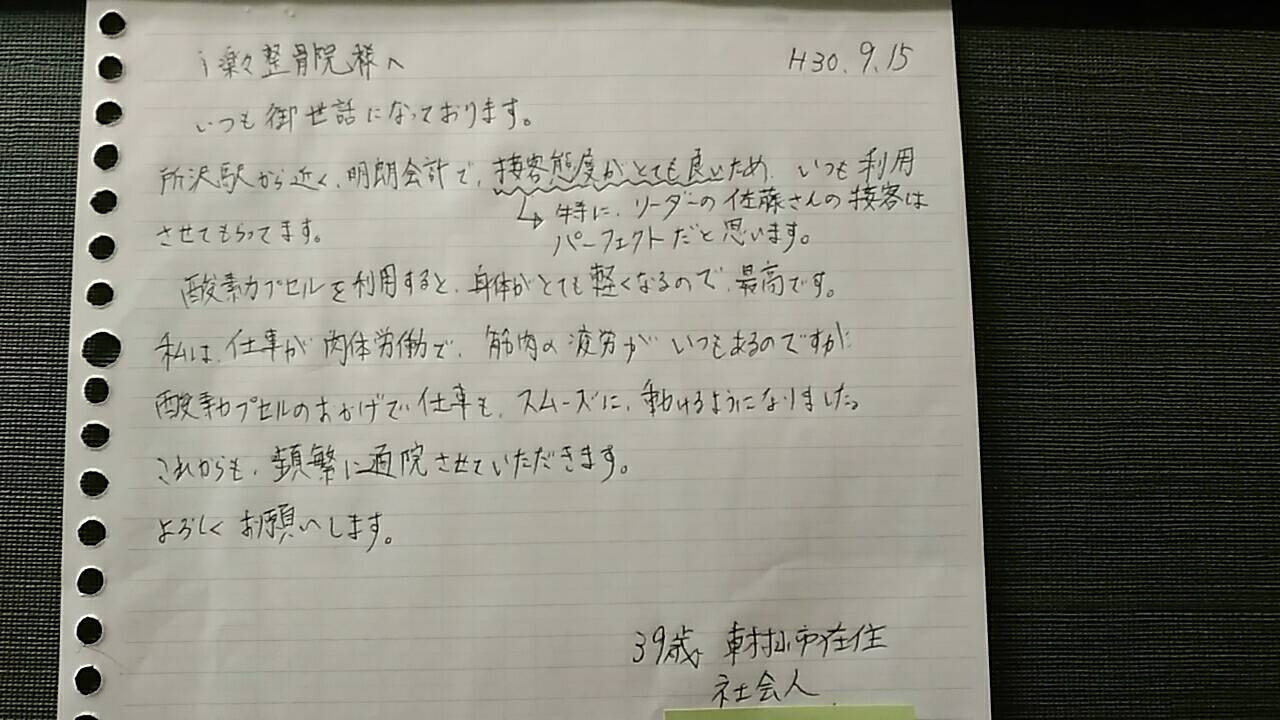 i楽々整骨院様へ
H30.9.15
いつも御世話になっております。
所沢駅から近く、明朗会計で、接客態度がとても良いため、いつも利用
→特に、リーダーの佐藤さんの接客は
パーフェクトだと思います。
させてもらってます。
酸素カプセルを利用すると、身体がとても軽くなるので、最高です。
私は、仕事が肉体労働で、筋肉の疲労がいつもあるのですが
酸素カプセルのおかげで仕事も、スムーズに、動けるようになりました。
これからも、頻繁に通院させていただきます。
よろしくお願いします。
39歳 東村山市在住
社会人